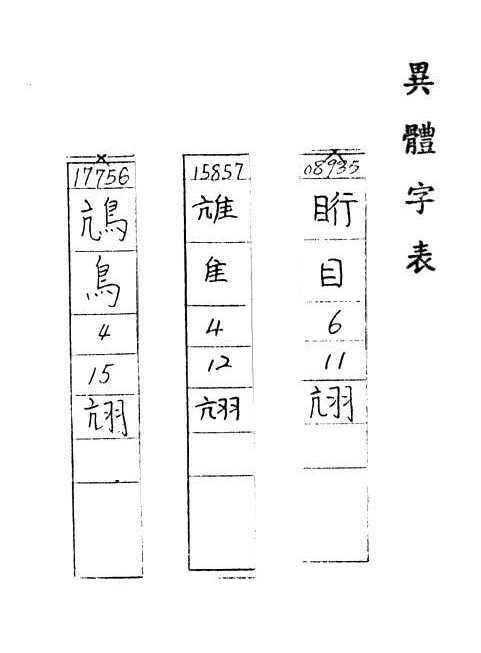 異體字表
08935
䀪
目
6
11
15857
隹
4
12
17756
䲳
鳥
4
15